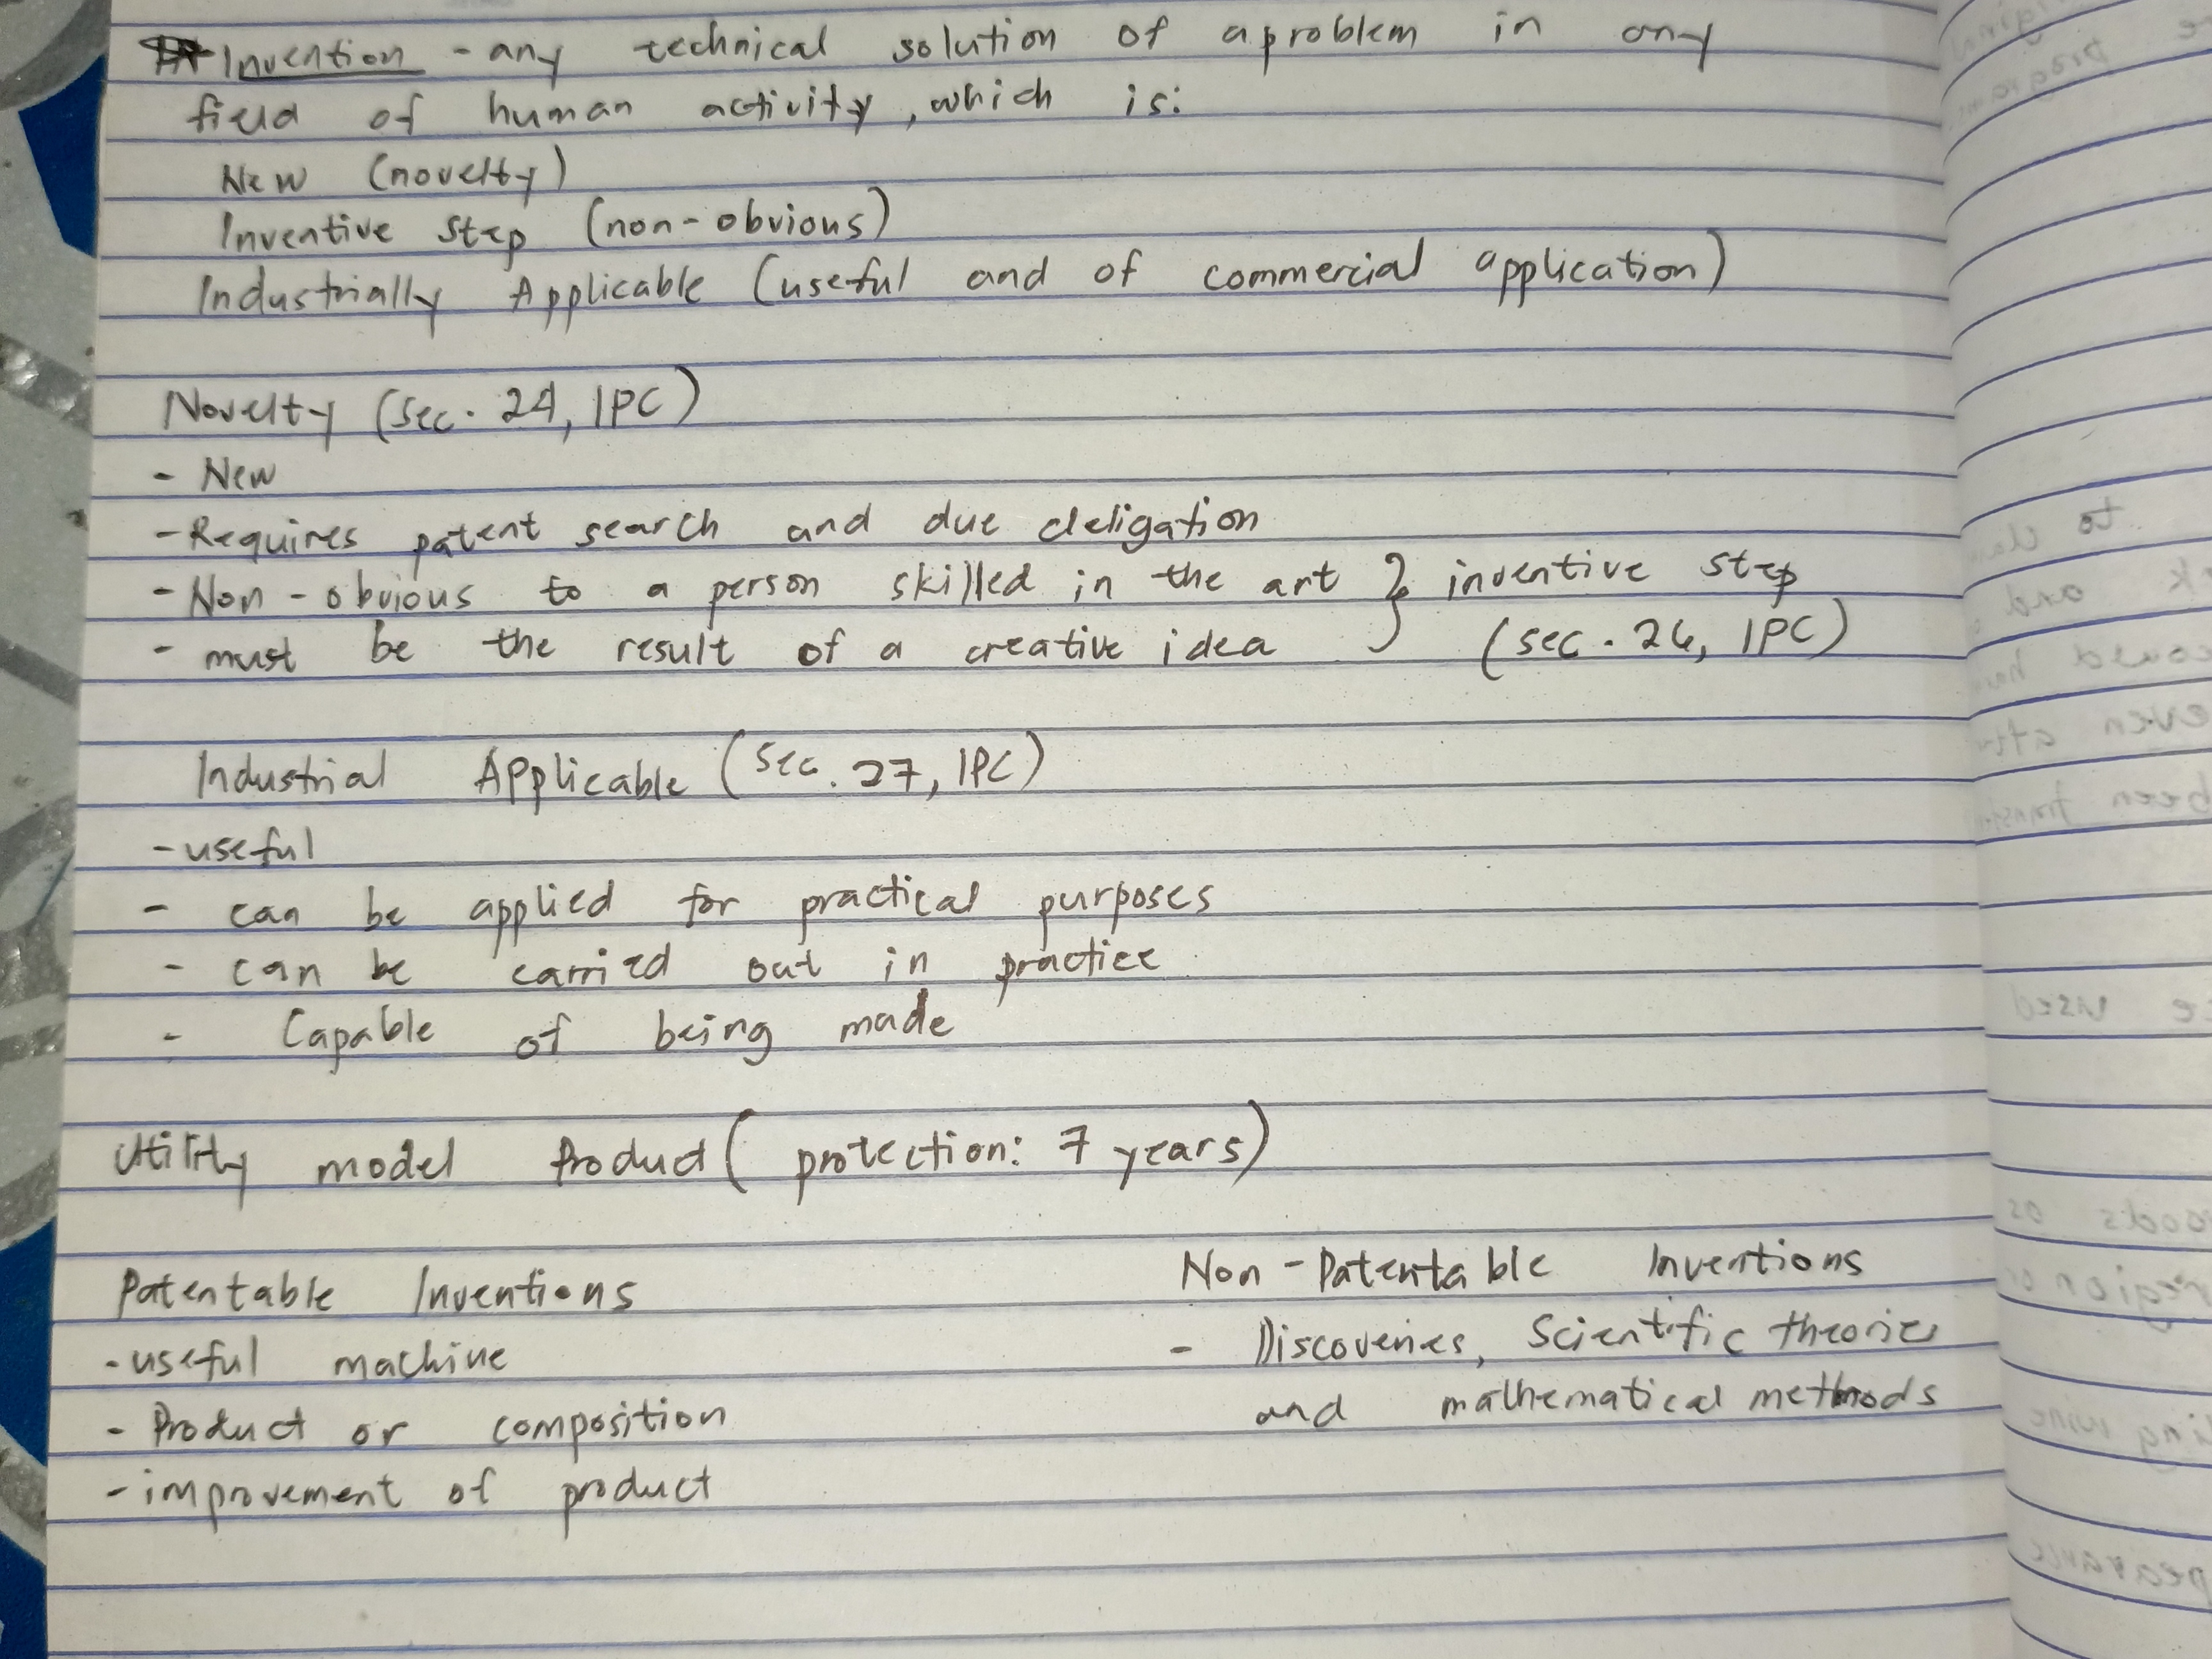 Invention - any technical solution of a problem in any
field of human activity, which is:
New (novelty)
Inventive step (non-obvious)
Industrially Applicable (useful and of commercial application)
Novelty (Sec. 24, IPC)
- New
- Requires patent search and due deligation
- Non-obvious to a person skilled in the art } inventive step
- must be the result of a creative idea (sec. 26, IPC)
Industrial Applicable (Sec. 27, IPC)
- useful
- can be applied for practical purposes
- can be carried out in practice
- Capable of being made
Utility model Product (protection: 7 years)
Patentable Inventions
- useful machine
- Product or composition
- improvement of product
Non-Patentable Inventions
- Discoveries, Scientific theories
and mathematical methods